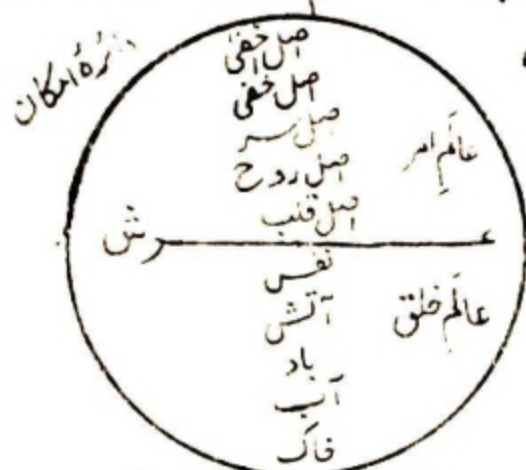 دائرۂ امکان
اصل اخفی
اصل خفی
اصل سر
اصل روح
اصل قلب
عالَمِ امر
عرش
نفس
آتش
باد
آب
خاک
عالَمِ خلق